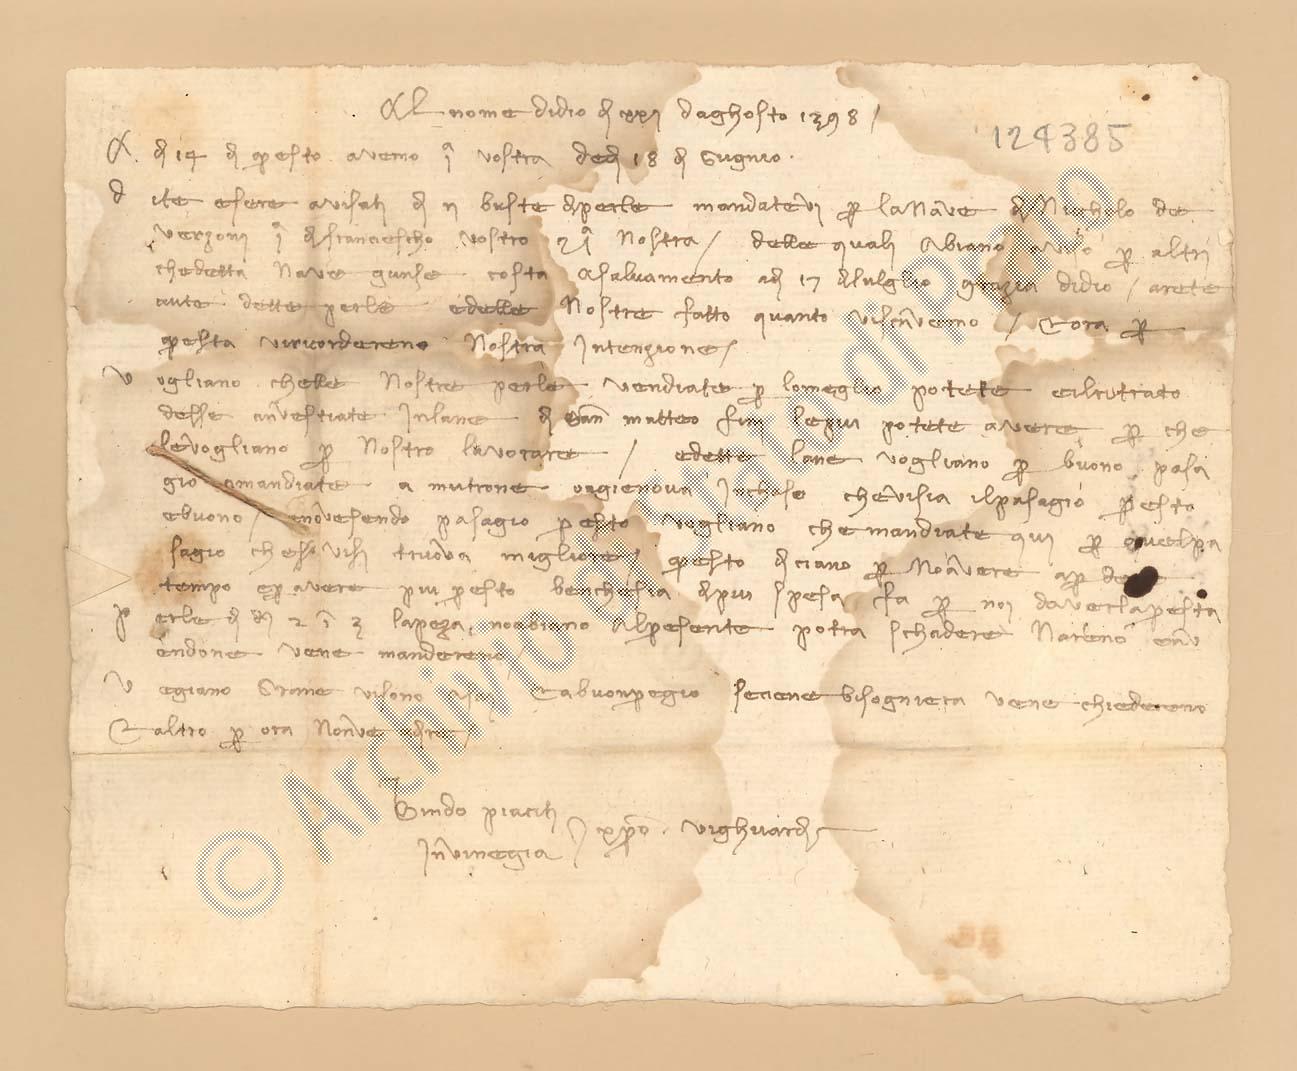 Al nome di Dio dì xxi d'aghosto 1398 /
124385
A dì 14 di questo avemo 1ª vostra de dì 18 di Gugnio.
Dite esere avisati di II buste di perle mandatevi per la nave di Nicholo de
Verzoni 1ª di Francescho vostro e 1ª nostra / delle quali abiano aviso per altri
che detta nave gunse costà a salvamento a dì 17 di luglio grazia di Dio / arete
aute dette perle e delle nostre fatto quanto vi scrivemo / E ora per
questa vi ricordereno nostra intenzione /
Vogliano che lle nostre perle vendiate per lo meglio potete e il ritrato
desse investiate in lane di San Matteo fini le più potete avere per che
le vogliano per nostro lavorare / e dette lane vogliano per buono pasa
gio mandiate a Mutrone o a Gienova in chaso che vi sia il pasagio presto
e buono / e non v'esendo pasagio presto vogliano che mandiate qui per quel pa
sagio che ssi vi si truova migliore / questo diciano per non avere a perdere
tempo e per avere più presto benchè sia di più spesa fa per noi d'averla presta
Perle di d. 2 in 3 la peza, no abiano al presente potrà schadere n'areno e av
endone ve ne mandereno /
Vegiano Grane vi sono assai e a buon pregio se ciene bisognierà ve ne chiedereno
E altro per ora non ve a dire /
Guido Piaciti
in Vinegia / Cristo vi ghuardi
© Archivio di Stato di Prato